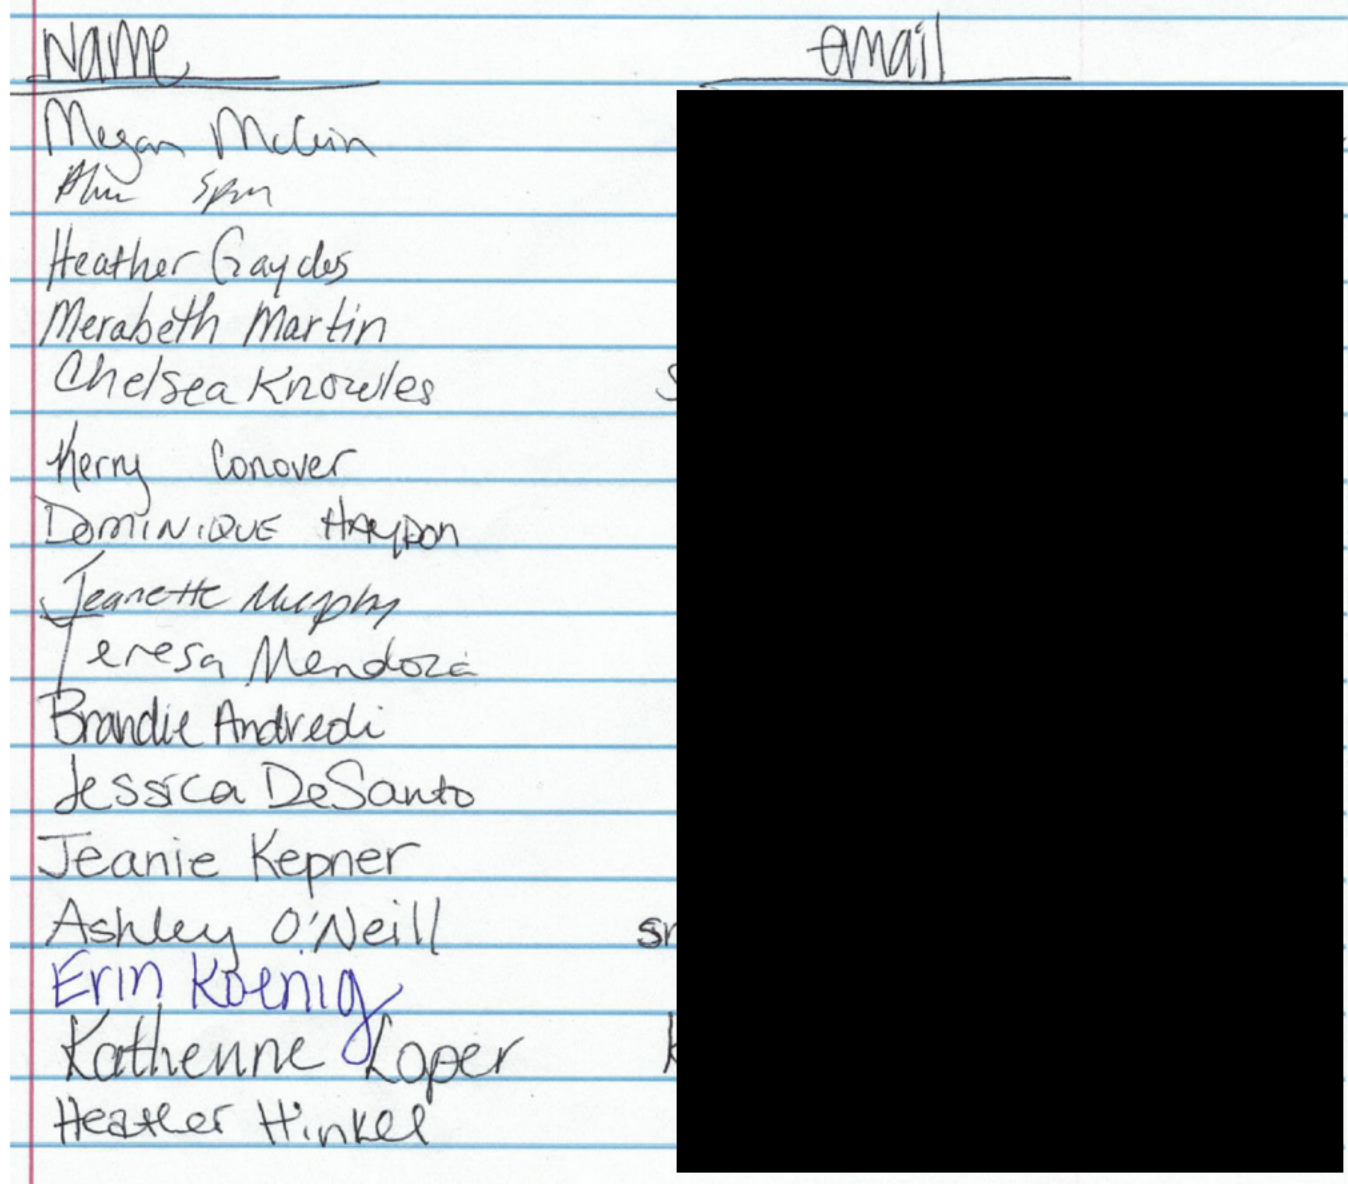 Name email
Megan
Heather Gaydos
Merabeth Martin
Chelsea Knowles S
Kerry Conover
DOMINIQUE HAYDON
Jeanette Murphy
Teresa Mendoza
Brandie Andredi
Jessica DeSanto
Jeanie Kepner
Ashley O'Neill sr
Erin Koenig
Katherine Loper k
Heather Hinkel